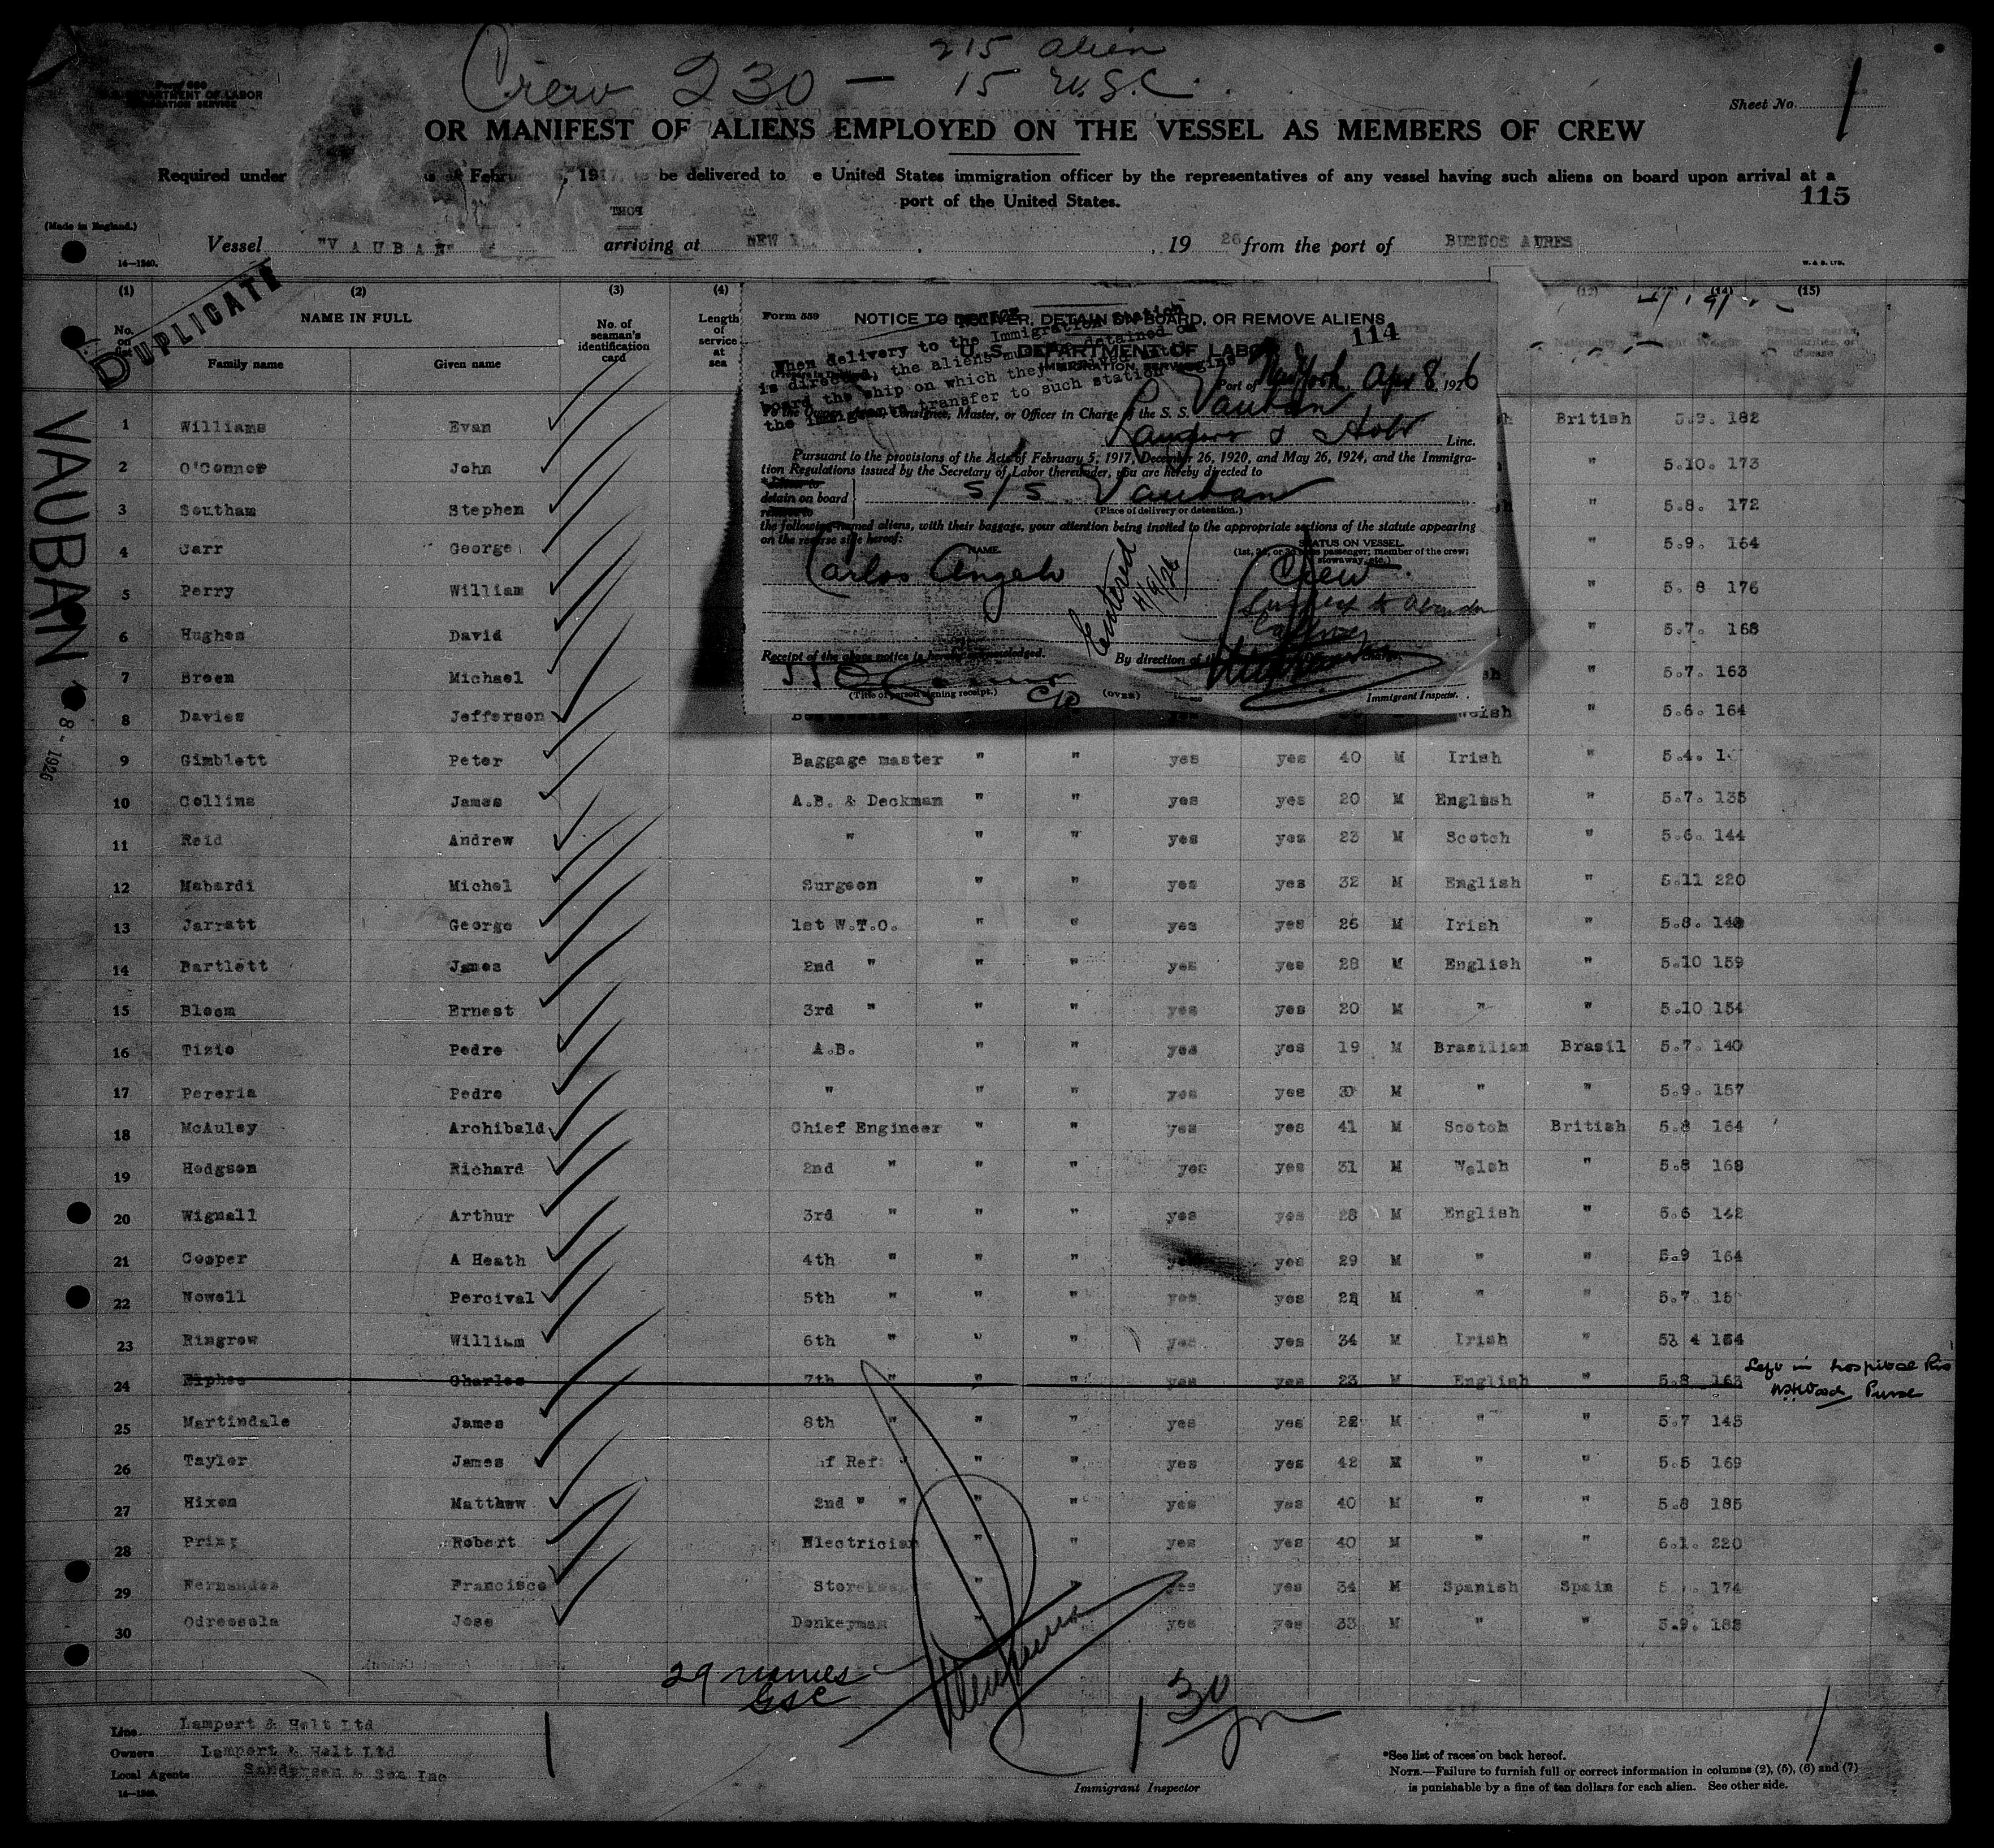 215 Alien
Crew 230 — 15 U.S.C.
Sheet No. 1
OR MANIFEST OF ALIENS EMPLOYED ON THE VESSEL AS MEMBERS OF CREW
Required under Februa , 1917, to be delivered to e United States immigration officer by the representatives of any vessel having such aliens on board upon arrival at a
port of the United States.
115
(Made in England.)
Vessel "VAUBAN" arriving at NEW , 19 26 from the port of BUENOS AIRES
14—1240.
W. & S. LTD.
DUPLICATE
VAUBAN
8 - 1926
(1) (2) (3) (4) (12) (14) (15)
NAME IN FULL
Family name Given name
No. of seaman's identification card
Length of service at sea
Form 559
NOTICE TO DELIVER, DETAIN ON BOARD, OR REMOVE ALIENS
114
U. S. DEPARTMENT OF LABOR
IMMIGRATION SERVICE
When delivery to the Immigration Station
is directed, the aliens must be detained on
board the ship on which they arrived until
the immigrants transfer to such station begins
Port of New York, Apr 8, 1926
To the Owner, Agent, Consignee, Master, or Officer in Charge of the S. S. Vauban
Line.
Pursuant to the provisions of the Acts of February 5, 1917, December 26, 1920, and May 26, 1924, and the Immigra-
tion Regulations issued by the Secretary of Labor thereunder, you are hereby directed to
detain on board S/S Vauban
(Place of delivery or detention.)
the following-named aliens, with their baggage, your attention being invited to the appropriate sections of the statute appearing
on the reverse side hereof:
NAME. STATUS ON VESSEL
(1st, 2d, or 3d class passenger; member of the crew; stowaway, etc.)
Carlos Angelo Crew
Entered 4/9/26
Receipt of the above notice is hereby acknowledged.
By direction of
(Title of person signing receipt.) (OVER) Immigrant Inspector.
1 Williams Evan British 5.9. 182
2 O'Connor John " 5.10. 173
3 Southam Stephen " 5.8. 172
4 Carr George " 5.9. 164
5 Perry William " 5. 8 176
6 Hughes David " 5.7. 168
7 Breen Michael " 5.7. 163
8 Davies Jefferson Welsh " 5.6. 164
9 Gimblett Peter Baggage master " " yes yes 40 M Irish " 5.4.
10 Collins James A.B. & Deckman " " yes yes 20 M English " 5.7. 135
11 Reid Andrew " " " yes yes 23 M Scotch " 5.6. 144
12 Mabardi Michel Surgeon " " yes yes 32 M English " 5.11 220
13 Jarratt George 1st W.T.O. " " yes yes 26 M Irish " 5.8.
14 Bartlett James 2nd " " " yes yes 28 M English " 5.10 159
15 Bloom Ernest 3rd " " " yes yes 20 M " " 5.10 154
16 Tizio Pedro A.B. " " yes yes 19 M Brazilian Brasil 5.7. 140
17 Pereria Pedro " " " yes yes 30 M " " 5.9. 157
18 McAuley Archibald Chief Engineer " " yes yes 41 M Scotch British 5.8 164
19 Hodgson Richard 2nd " " " yes yes 31 M Welsh " 5.8 168
20 Wignall Arthur 3rd " " " yes yes 28 M English " 5.6 142
21 Cooper A Heath 4th " " " yes yes 29 M " " 5.9 164
22 Nowell Percival 5th " " " yes yes M " " 5.7. 15
23 Ringrow William 6th " " " yes yes 34 M Irish " 5 4 164
24 Elphee Charles 7th " " " yes yes 23 M English " 5.8 163 Left in hospital Rio
Purser
25 Martindale James 8th " " " yes yes 22 M " " 5.7 145
26 Taylor James hf Ref: " " " yes yes 42 M " " 5.5 169
27 Hixon Matthew 2nd " " " " yes yes 40 M " " 5.8 185
28 Robert Electrician " " yes yes 40 M " " 6.1. 220
29 Fernandes Francisco " " yes yes 34 M Spanish Spain 5. 174
30 Odreosola Jose Donkeyman " yes yes 33 M " " 5.9.
29 names
1 30
Line Lamport & Holt Ltd
Owners Lamport & Holt Ltd
Local Agents Sanderson & Son Inc
Immigrant Inspector
*See list of races on back hereof.
NOTE.—Failure to furnish full or correct information in columns (2), (5), (6) and (7)
is punishable by a fine of ten dollars for each alien. See other side.